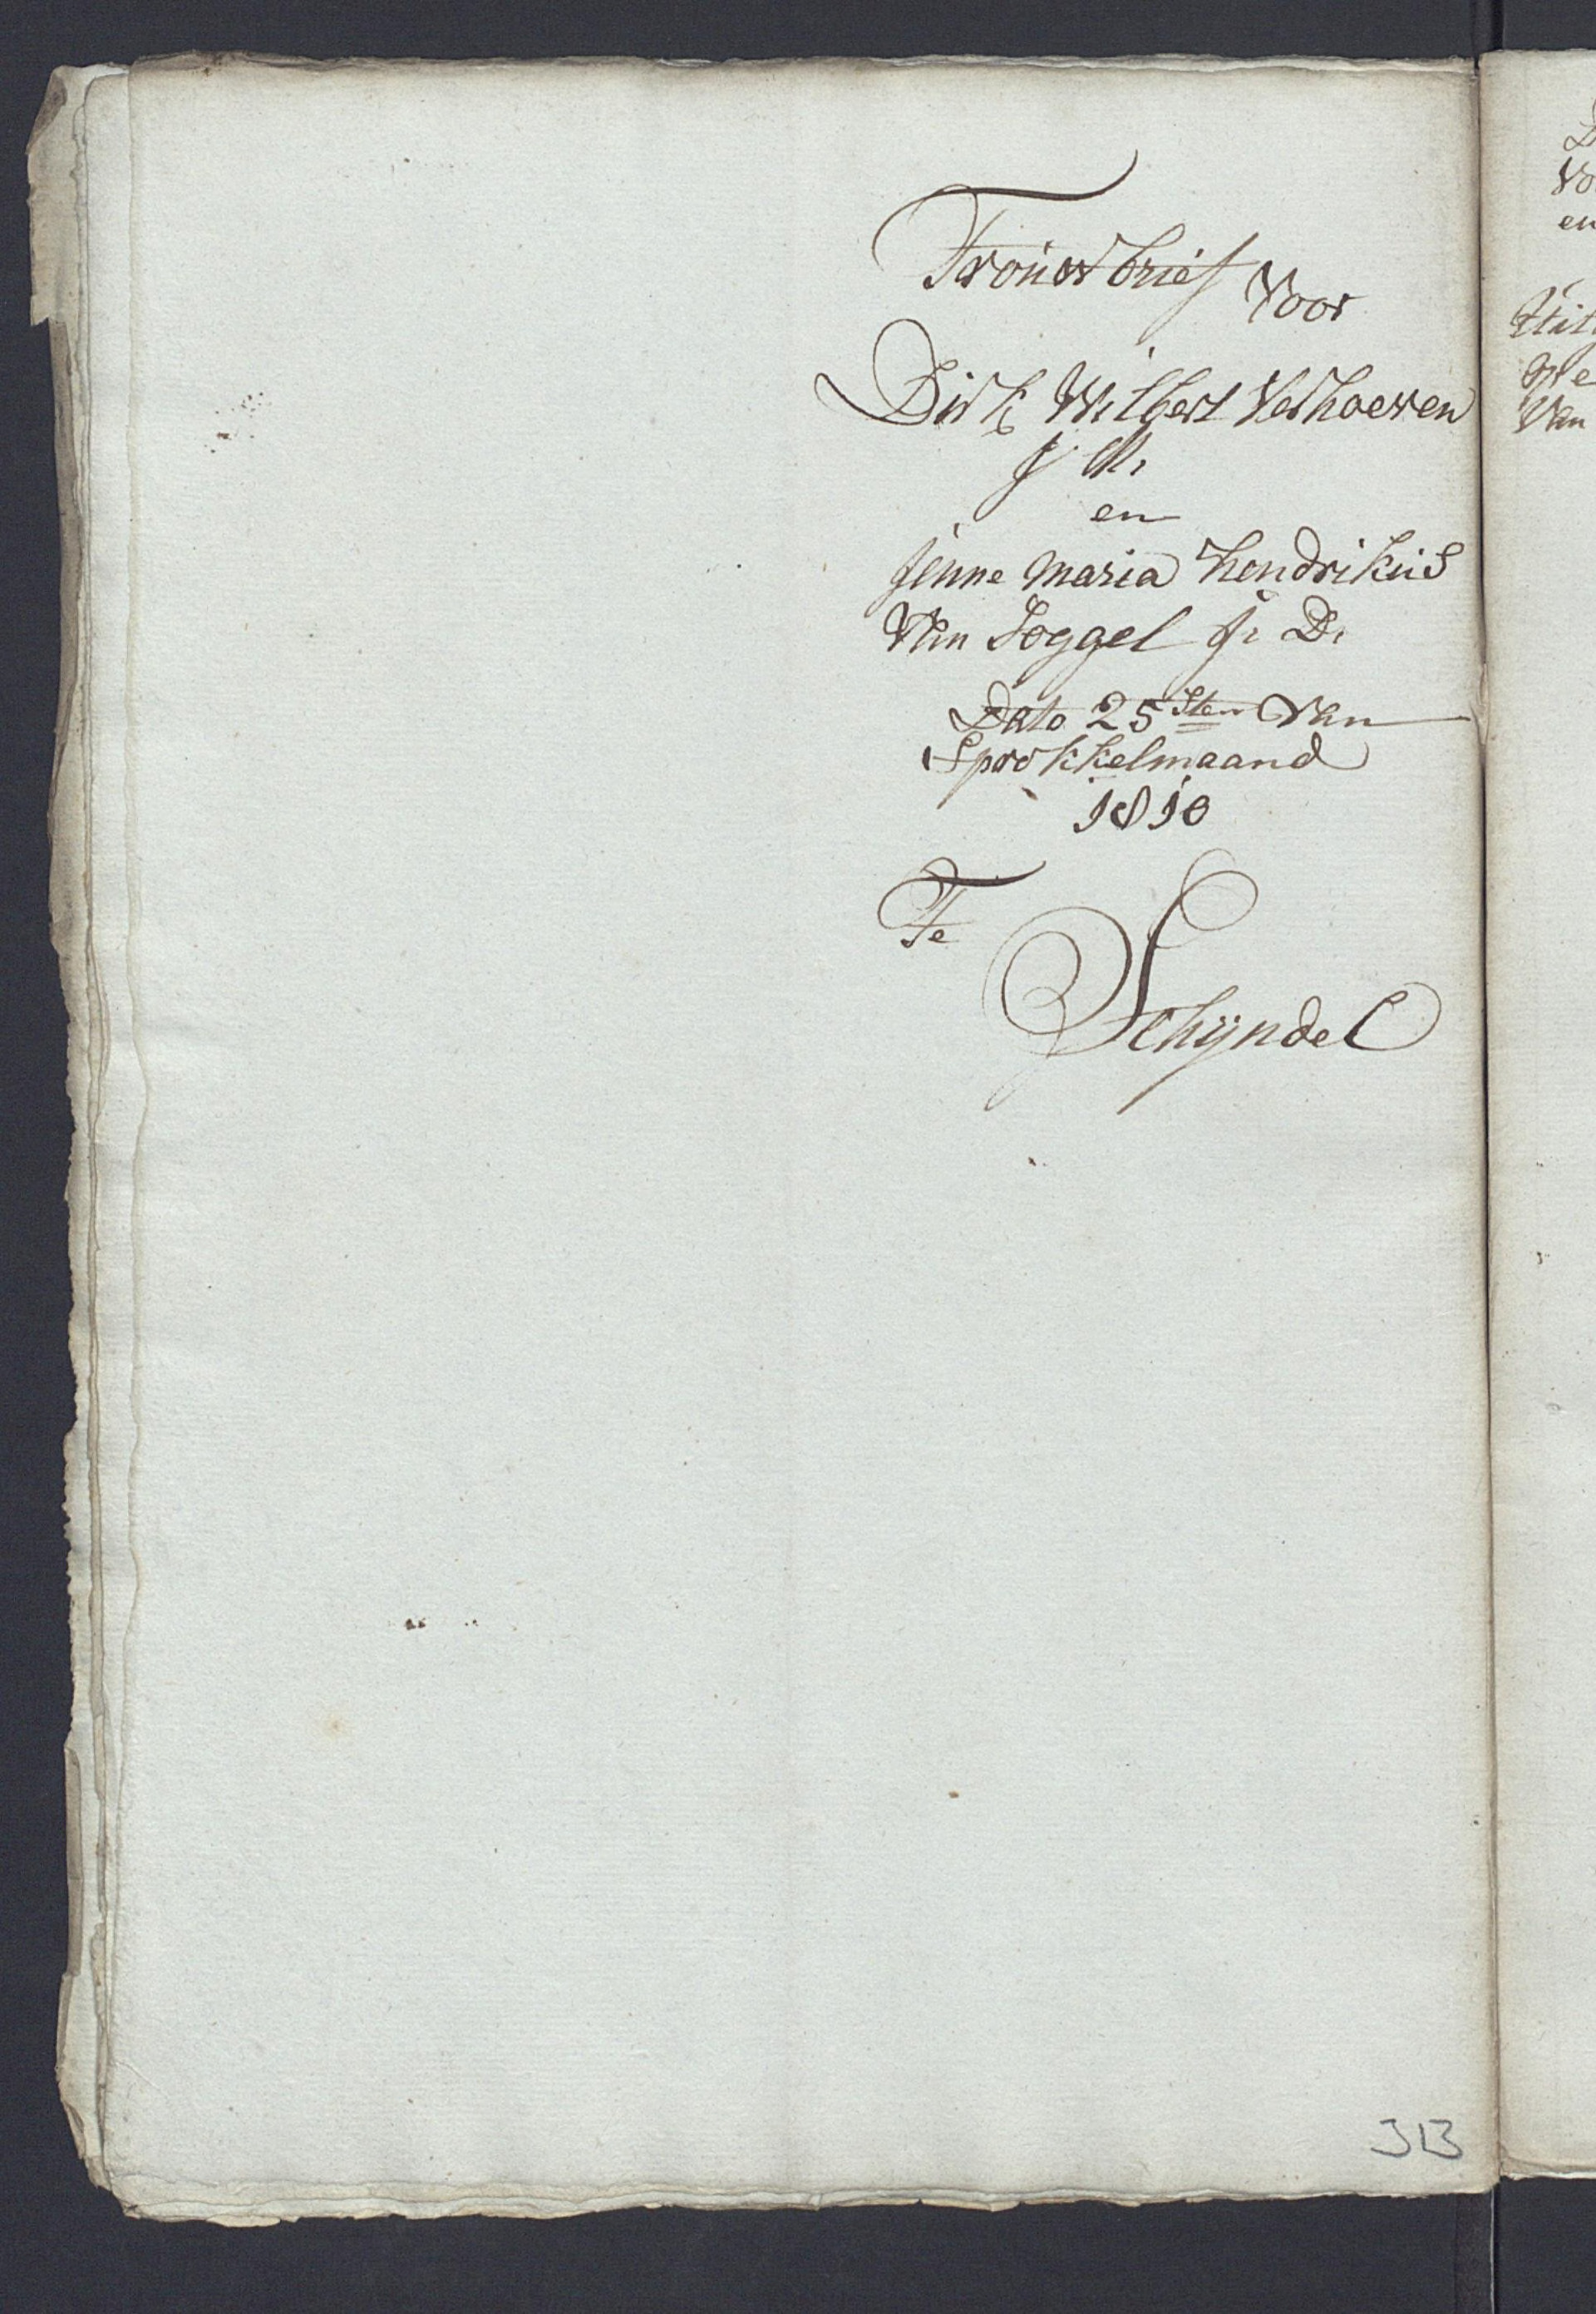 Trouwbrief
voor
Dirk Wilbert Verhoeven
J M:
en
Jenne Maria Hendrikus
Van Soggel J: D:
Dato 25sten Van
Sprokkelmaand
1810
Te
Schyndel
313
en
Van